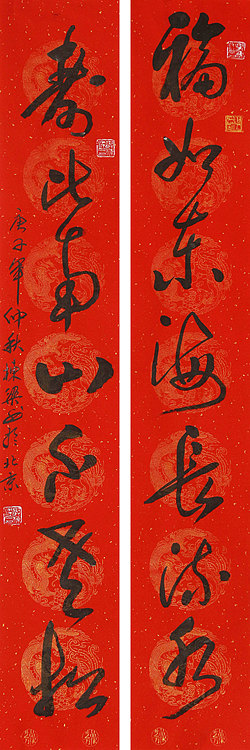 福如东海长流水
寿比南山不老松
庚子年仲秋铁梁书于北京